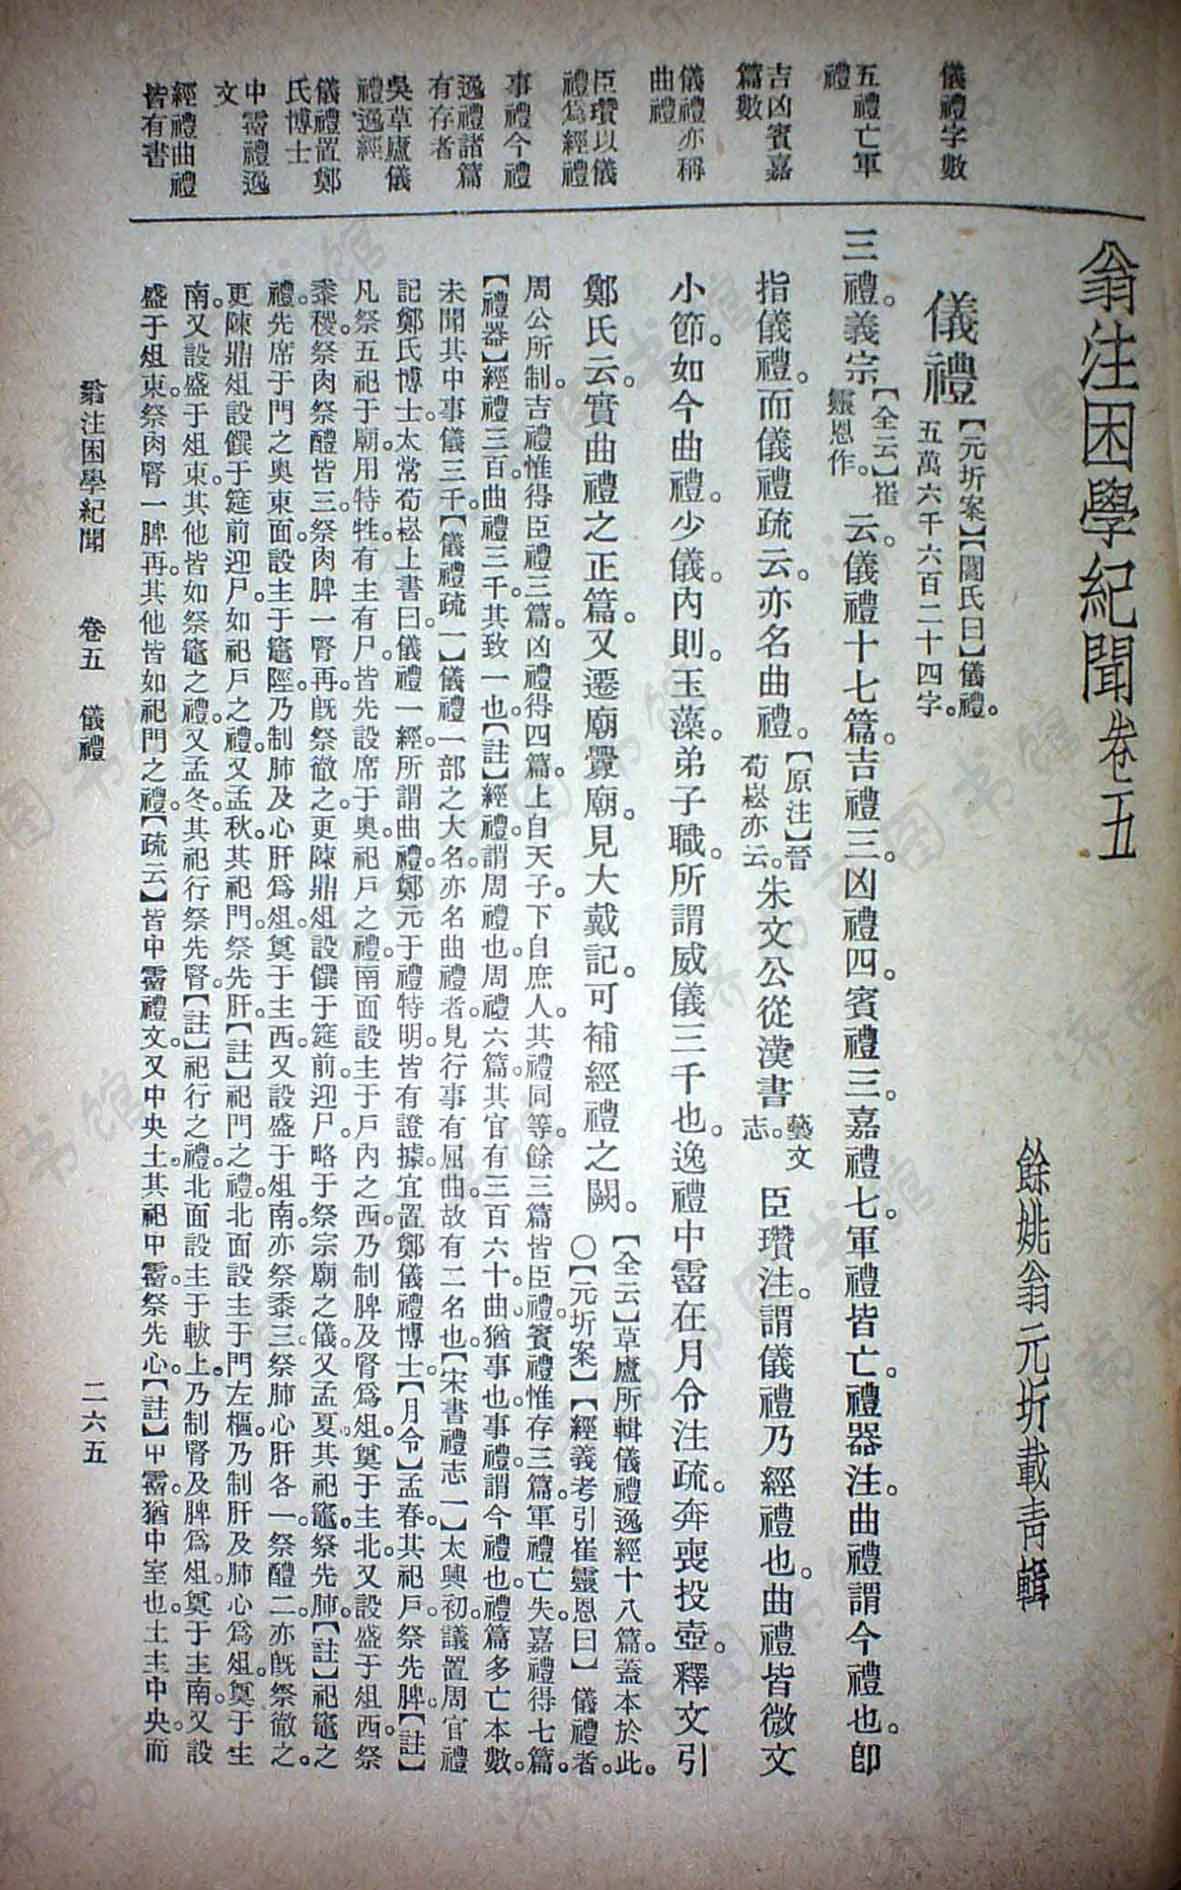 翁注困學紀聞卷五
餘姚翁元圻載青輯
儀禮字數
五禮亡軍
禮
吉凶賓嘉
篇數
儀禮亦稱
曲禮
臣瓚以儀
禮爲經禮
事禮今禮
逸禮諸篇
有存者
吳草廬儀
禮逸經
儀禮置鄭
氏博士
中霤禮逸
文
經禮曲禮
皆有書
儀禮【元圻案】【閻氏曰】儀禮。
五萬六千六百二十四字。
三禮。義宗【全云】崔
靈恩作。云。儀禮十七篇。吉禮三。凶禮四。賓禮三。嘉禮七。軍禮皆亡。禮器注。曲禮謂今禮也。卽
指儀禮。而儀禮疏云。亦名曲禮。【原注】晉
荀崧亦云。朱文公從漢書藝文
志。臣瓚注。謂儀禮乃經禮也。曲禮皆微文
小節。如今曲禮。少儀。內則。玉藻。弟子職。所謂威儀三千也。逸禮中霤在月令注疏。奔喪投壺。釋文引
鄭氏云。實曲禮之正篇。又遷廟釁廟。見大戴記。可補經禮之闕。【全云】草廬所輯儀禮逸經十八篇。蓋本於此。
〇【元圻案】【經義考引崔靈恩曰】儀禮者。
周公所制。吉禮惟得臣禮三篇。凶禮得四篇。上自天子。下自庶人。其禮同等。餘三篇皆臣禮。賓禮惟存三篇。軍禮亡失。嘉禮得七篇。
【禮器】經禮三百。曲禮三千。其致一也。【註】經禮。謂周禮也。周禮六篇。其官有三百六十。曲猶事也。事禮。謂今禮也。禮篇多亡。本數。
未聞其中事儀三千。【儀禮疏一】儀禮一部之大名。亦名曲禮者。見行事有屈曲。故有二名也。【宋書禮志一】太興初。議置周官禮
記鄭氏博士。太常荀崧上書曰。儀禮一經。所謂曲禮。鄭元于禮特明。皆有證據。宜置鄭儀禮博士。【月令】孟春。其祀戶。祭先脾。【註】
凡祭五祀于廟。用特牲。有主有尸。皆先設席于奧。祀戶之禮。南面設主于戶內之西。乃制脾及腎爲俎。奠于主北。又設盛于俎西。祭
黍稷。祭肉祭醴皆三。祭肉脾一腎再。旣祭徹之。更陳鼎俎。設饌于筵前。迎尸。略于祭宗廟之儀。又孟夏其祀竈。祭先肺。【註】祀竈之
禮。先席于門之奧東面。設主于竈陘。乃制肺及心肝爲俎。奠于主西。又設盛于俎南。亦祭黍三。祭肺心肝各一。祭醴二。亦旣祭徹之。
更陳鼎俎。設饌于筵前。迎尸。如祀戶之禮。又孟秋。其祀門。祭先肝。【註】祀門之禮。北面設主于門左樞。乃制肝及肺心爲俎。奠于主
南。又設盛于俎東。其他皆如祭竈之禮。又孟冬。其祀行。祭先腎。【註】祀行之禮。北面設主于軷上。乃制腎及脾爲俎。奠于主南。又設
盛于俎東。祭肉腎一脾再。其他皆如祀門之禮。【疏云】皆中霤禮文。又中央土。其祀中霤。祭先心。【註】中霤。猶中室也。土主中央。而
翁注困學紀聞 卷五 儀禮 二六五